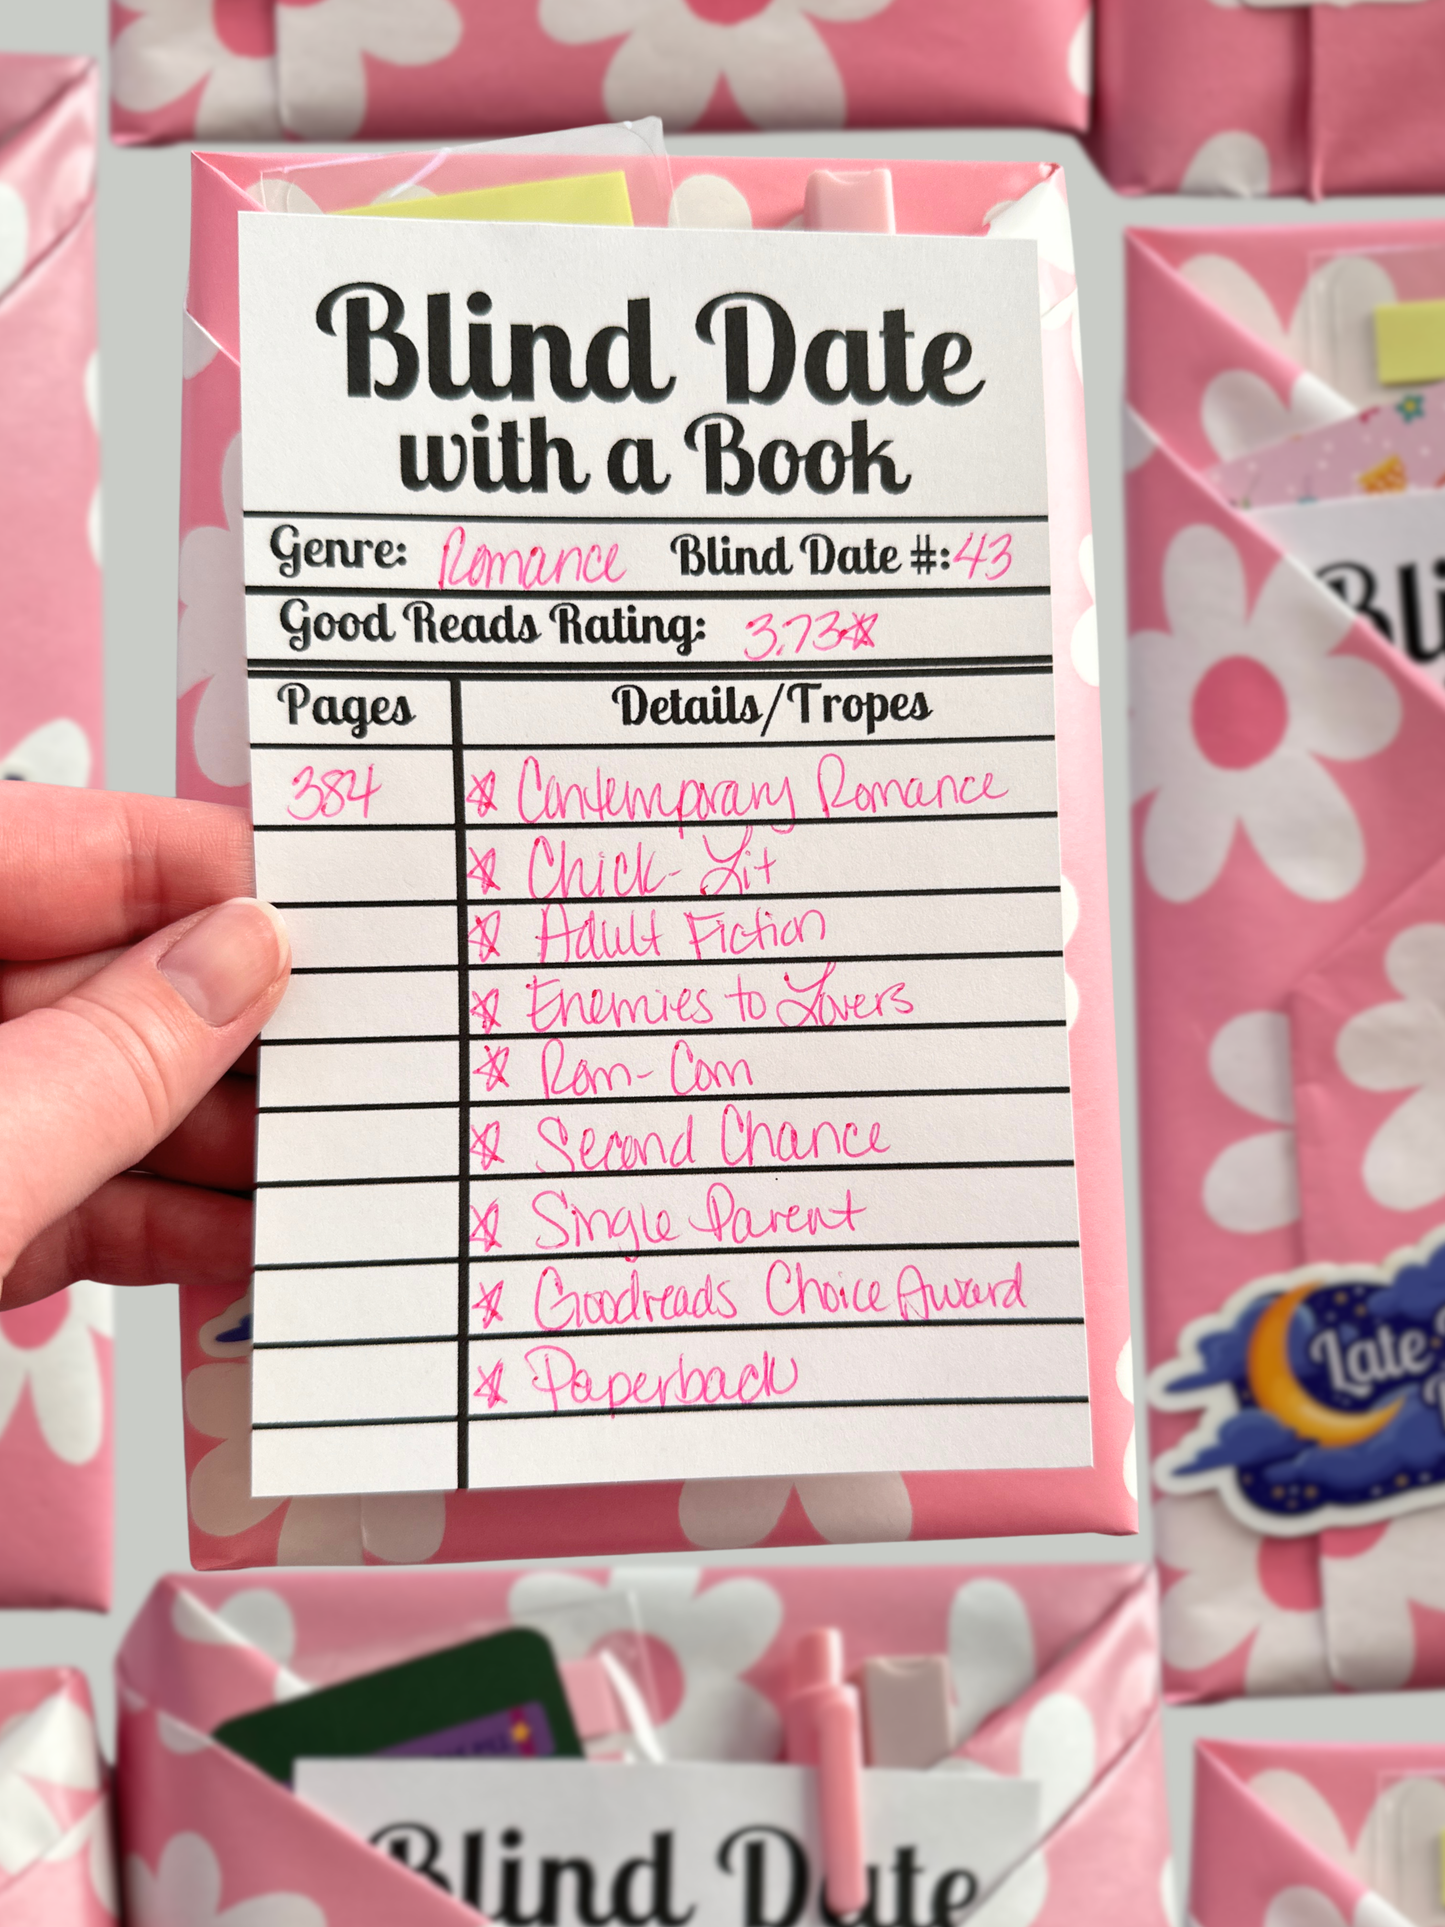 Blind Date
with a Book
Genre: Romance Blind Date #: 43
Good Reads Rating: 3.73☆
Pages Details/Tropes
384 ☆ Contemporary Romance
☆ Chick-Lit
☆ Adult Fiction
☆ Enemies to Lovers
☆ Rom-Com
☆ Second Chance
☆ Single Parent
☆ Goodreads Choice Award
☆ Paperback
Bli
Late
Blind Date